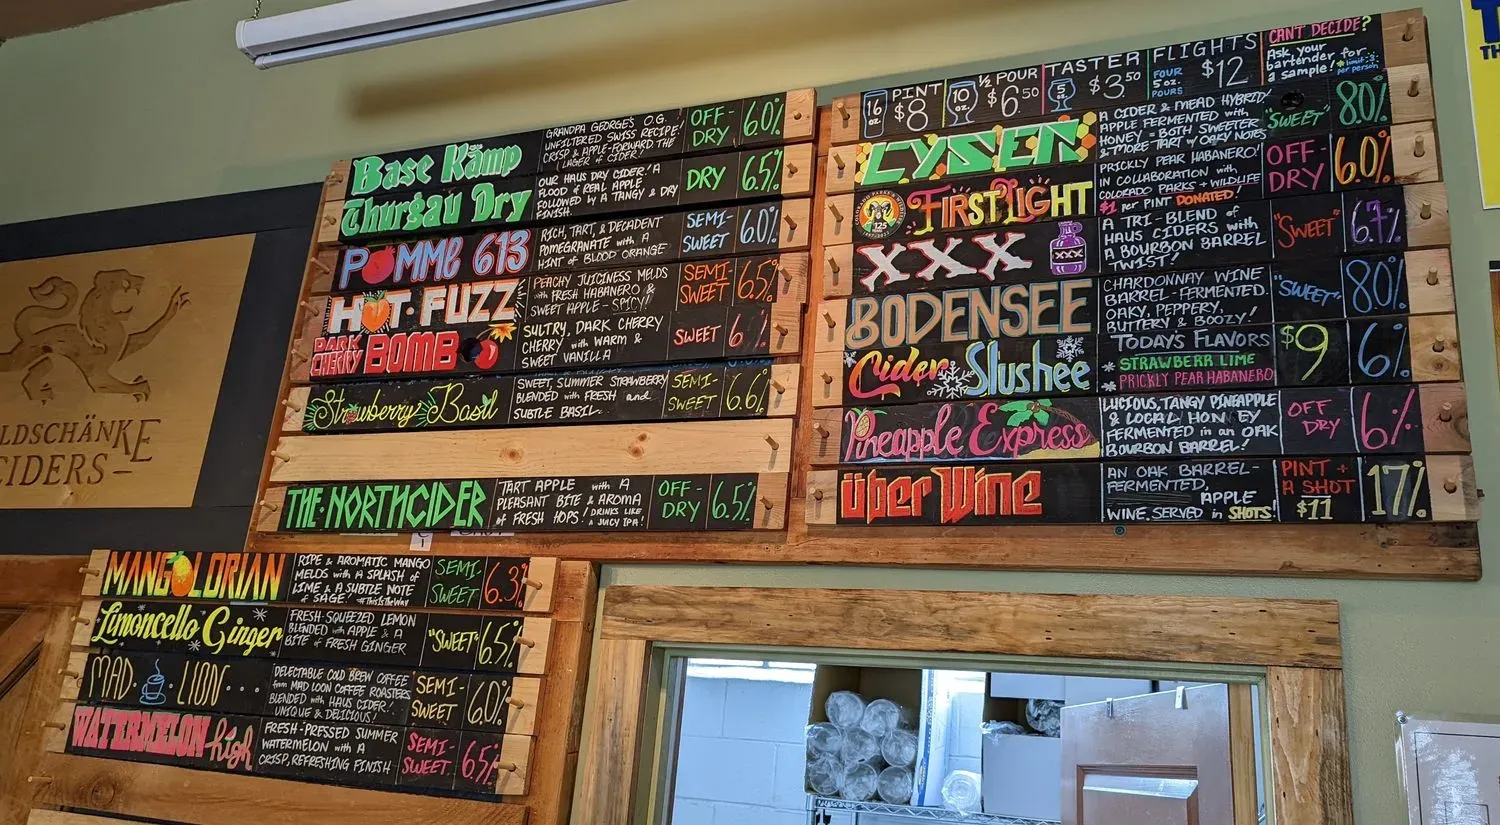 LDSCHÄNKE
CIDERS
Base Kamp
GRANDPA GEORGE'S O.G.
UNFILTERED SWISS RECIPE!
CRISP & APPLE-FORWARD. THE
LAGER of CIDER!
OFF-
DRY
6.0%
Thurgau Dry
OUR HAUS DRY CIDER! A
FLOOD of REAL APPLE
FOLLOWED by A TANGY & DRY
FINISH.
DRY
6.5%
POMME 613
RICH, TART, & DECADENT
POMEGRANATE with A
HINT of BLOOD ORANGE
SEMI-
SWEET
6.0%
HOT·FUZZ
PEACHY JUICINESS MELDS
with FRESH HABANERO &
SWEET APPLE - SPICY!
SEMI-
SWEET
6.5%
DARK
CHERRY
BOMB
SULTRY, DARK CHERRY
CHERRY with WARM &
SWEET VANILLA
SWEET
6%
Strawberry Basil
SWEET, SUMMER STRAWBERRY
BLENDED with FRESH and
SUBTLE BASIL.
SEMI-
SWEET
6.6%
THE·NORTHCIDER
TART APPLE with A
PLEASANT BITE & AROMA
of FRESH HOPS! DRINKS LIKE
A JUICY IPA!
OFF-
DRY
6.5%
MANGOLORIAN
RIPE & AROMATIC MANGO
MELDS with A SPLASH of
LIME & A SUBTLE NOTE
of SAGE! #ThisIsTheWay
SEMI-
SWEET
6.3%
Limoncello Ginger
FRESH-SQUEEZED LEMON
BLENDED with APPLE & A
BITE of FRESH GINGER
"SWEET"
6.5%
MAD · LION...
DELECTABLE COLD BREW COFFEE
from MAD LOON COFFEE ROASTERS
BLENDED with HAUS CIDER!
UNIQUE & DELICIOUS!
SEMI-
SWEET
6.0%
WATERMELON high
FRESH-PRESSED SUMMER
WATERMELON with A
CRISP, REFRESHING FINISH
SEMI-
SWEET
6.5%
16 oz.
PINT
$8
10 oz.
½ POUR
$6.50
5 oz.
TASTER
$3.50
FLIGHTS
FOUR
5 oz.
POURS
$12
CAN'T DECIDE?
Ask your
bartender for
a sample! *limit 3
per person
LYSER
A CIDER & MEAD HYBRID!
APPLE FERMENTED with
HONEY = BOTH SWEETER
& MORE TART w/ OAKY NOTES
"SWEET"
8.0%
125
FIRST LIGHT
PRICKLY PEAR HABANERO!
IN COLLABORATION with
COLORADO PARKS + WILDLIFE
$1 per PINT DONATED!
OFF-
DRY
6.0%
XXX
XXX
A TRI-BLEND of
HAUS CIDERS with
A BOURBON BARREL
TWIST!
"SWEET"
6.7%
BODENSEE
CHARDONNAY WINE
BARREL-FERMENTED.
OAKY, PEPPERY,
BUTTERY & BOOZY!
"SWEET"
8.0%
Cider Slushee
TODAYS FLAVORS
* STRAWBERR LIME
* PRICKLY PEAR HABANERO
$9
6%
Pineapple Express
LUCIOUS, TANGY PINEAPPLE
& LOCAL HONEY
FERMENTED in an OAK
BOURBON BARREL!
OFF
DRY
6%
über Wine
AN OAK BARREL-
FERMENTED,
APPLE
WINE. SERVED in SHOTS!
PINT +
A SHOT
$11
17%